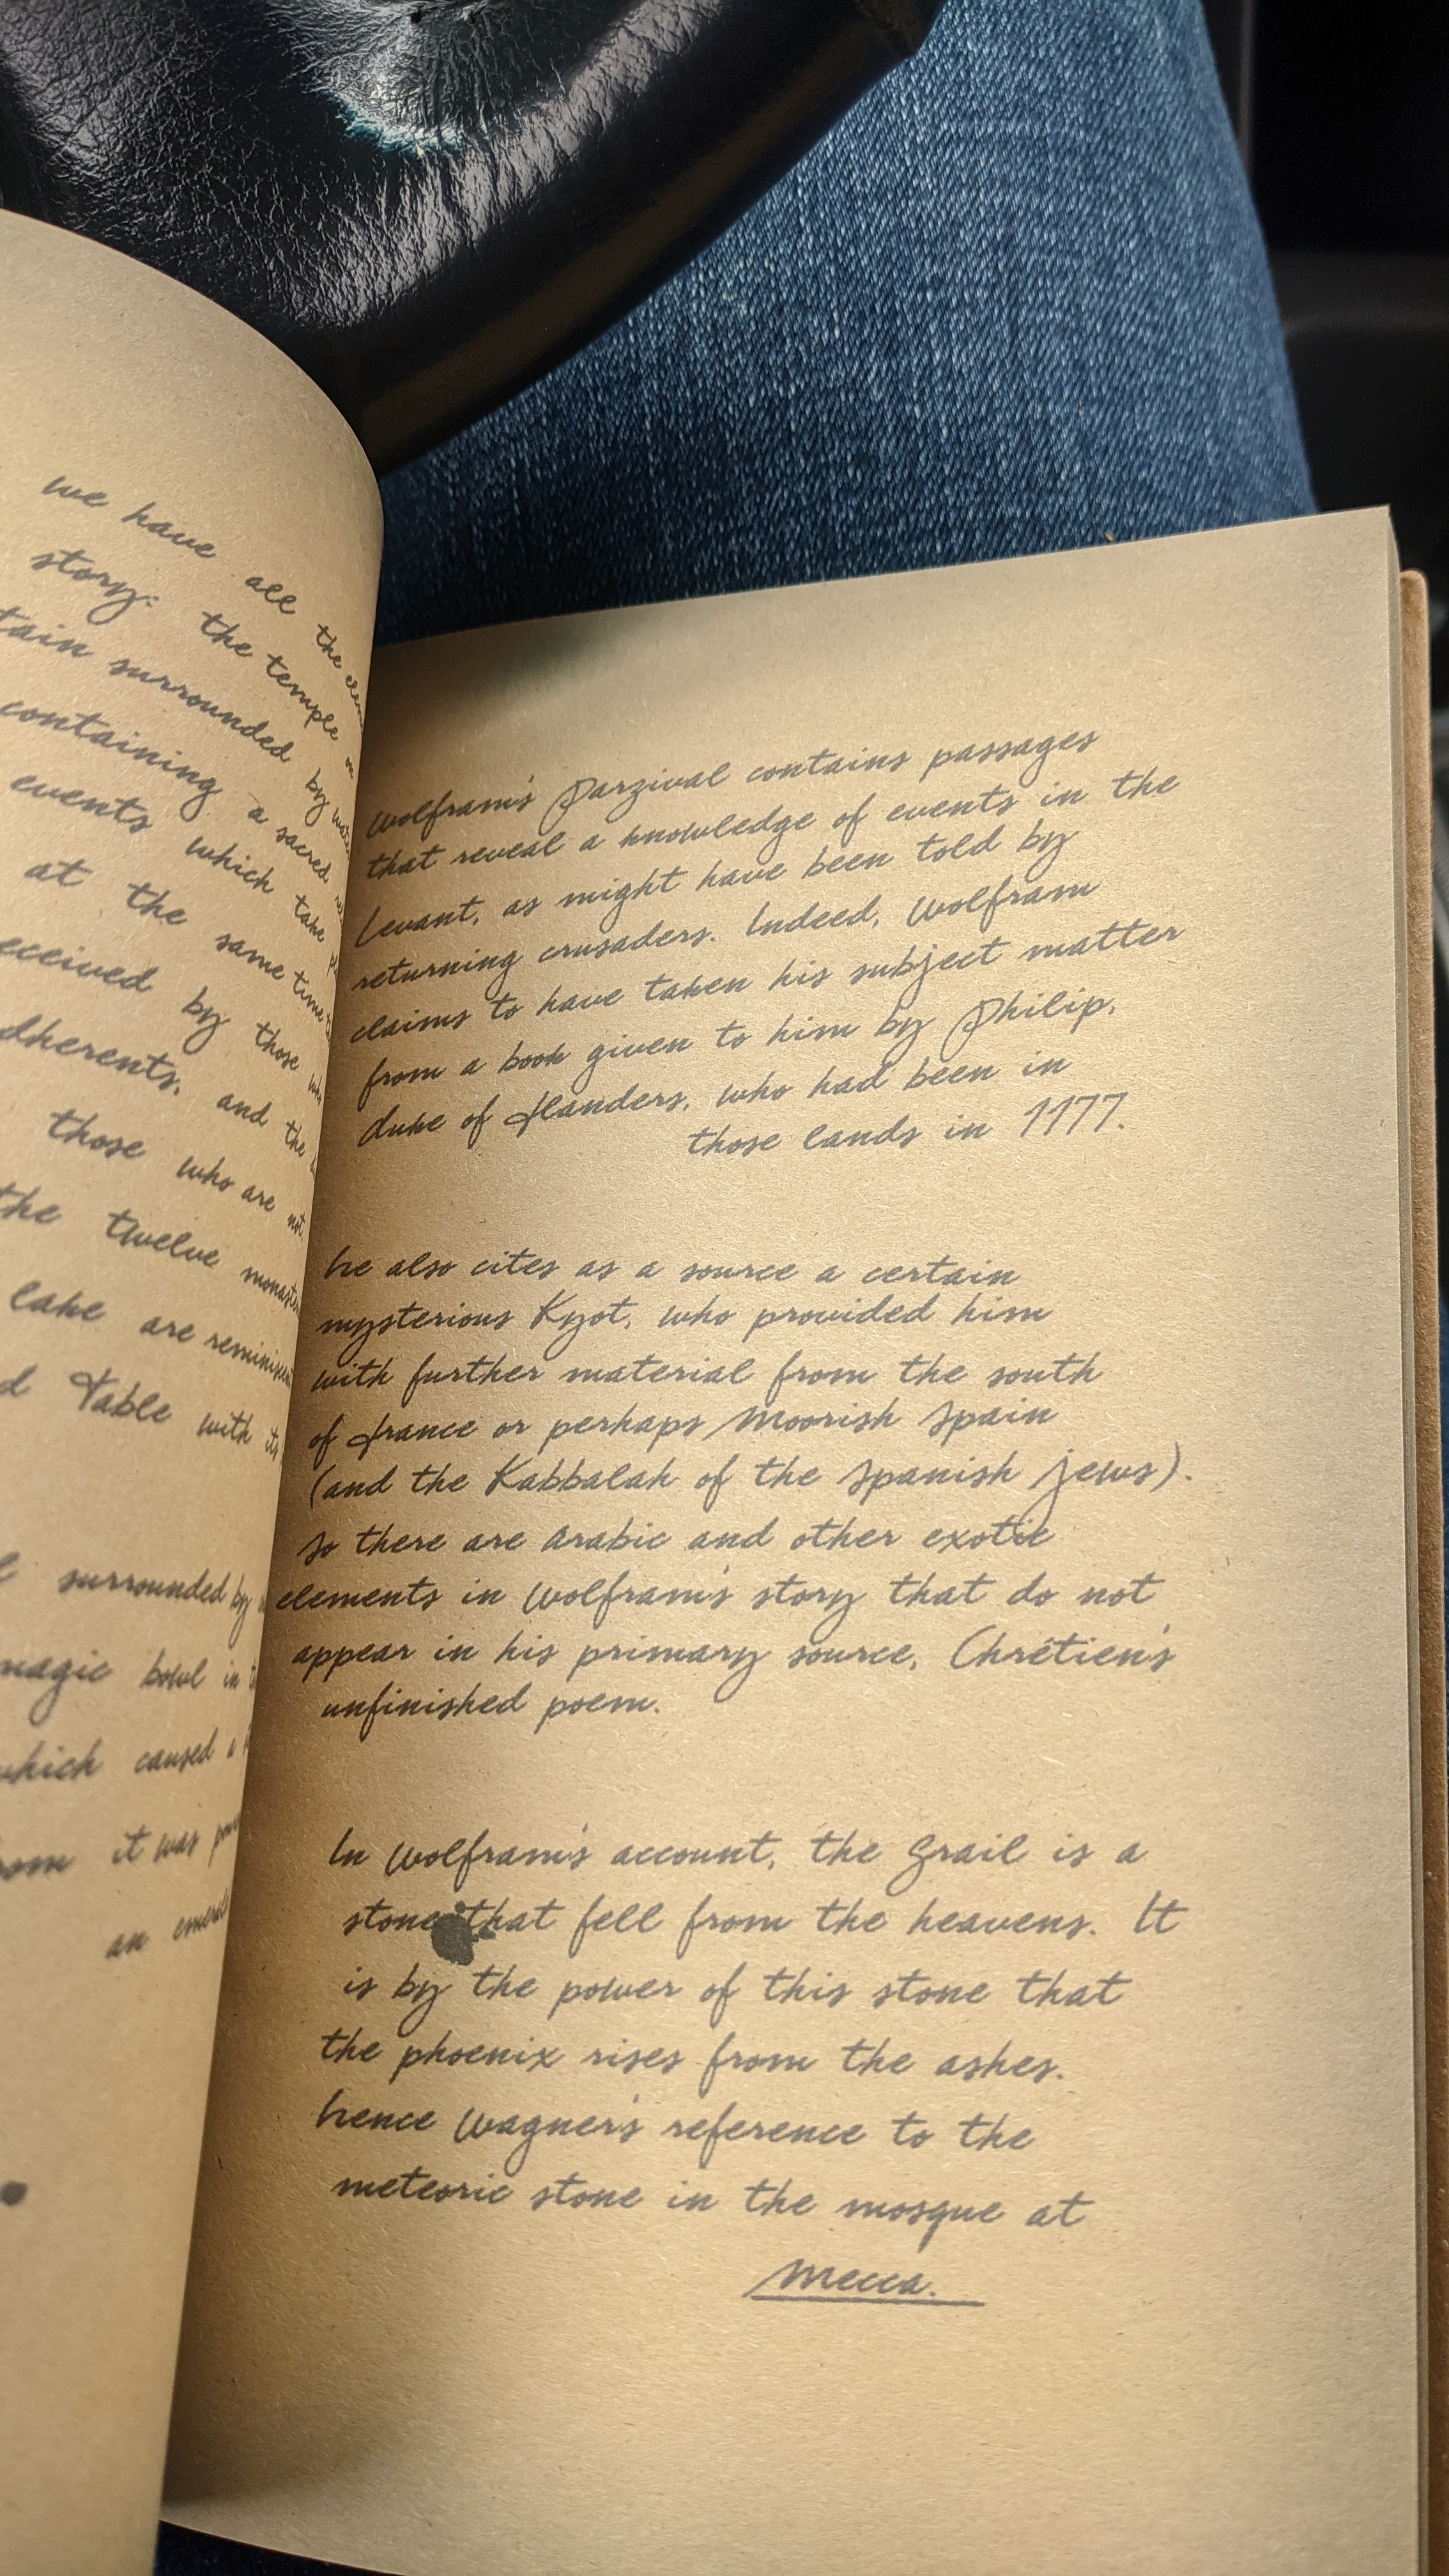 we have all the
story: the temple on
surrounded by
containing a sacred
events which take
at the same time
by those
and the
those who are not.
the twelve
lake are
Table with its
surrounded by
magic bowl in
which caused a
it was
an
Wolfram's Parzival contains passages
that reveal a knowledge of events in the
Levant, as might have been told by
returning crusaders. Indeed, Wolfram
claims to have taken his subject matter
from a book given to him by Philip,
duke of Flanders, who had been in
those lands in 1177.
He also cites as a source a certain
mysterious Kyot, who provided him
with further material from the south
of France or perhaps Moorish Spain
(and the Kabbalah of the Spanish Jews).
So there are Arabic and other exotic
elements in Wolfram's story that do not
appear in his primary source, Chrétien's
unfinished poem.
In Wolfram's account, the Grail is a
stone that fell from the heavens. It
is by the power of this stone that
the phoenix rises from the ashes.
Hence Wagner's reference to the
meteoric stone in the mosque at
Mecca.